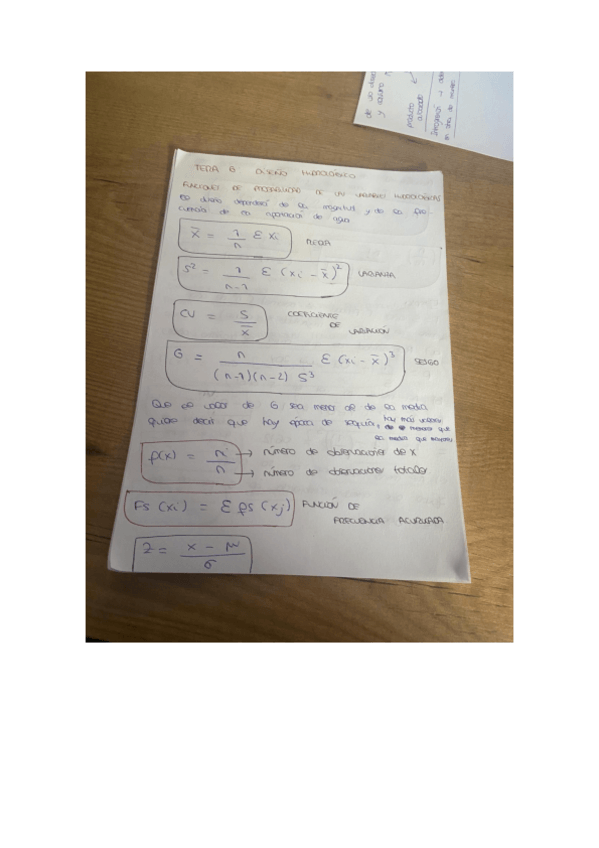 TEMA 6: DISEÑO HIDROLÓGICO
FUNCIONES DE PROBABILIDAD DE LAS VARIABLES HIDROLÓGICAS
El diseño dependerá de su magnitud y de su fre-
cuencia de de aportación de agua
x̄ = 1/n Σ xi MEDIA
S² = 1/(n-1) Σ (xi - x̄)² VARIANZA
CV = S/x̄ COEFICIENTE
DE
VARIACIÓN
G = n/((n-1)(n-2) S³) Σ (xi - x̄)³ SESGO
Que el valor de G sea menor de la media
quiere decir que hay época de sequía, hay más valores
menores que
la media que mayores
f(x) = ni/n → número de observaciones de x
→ número de observaciones totales
Fs (xi) = Σ fs (xj) FUNCIÓN DE
FRECUENCIA ACUMULADA
Z = (x - μ)/σ
producto